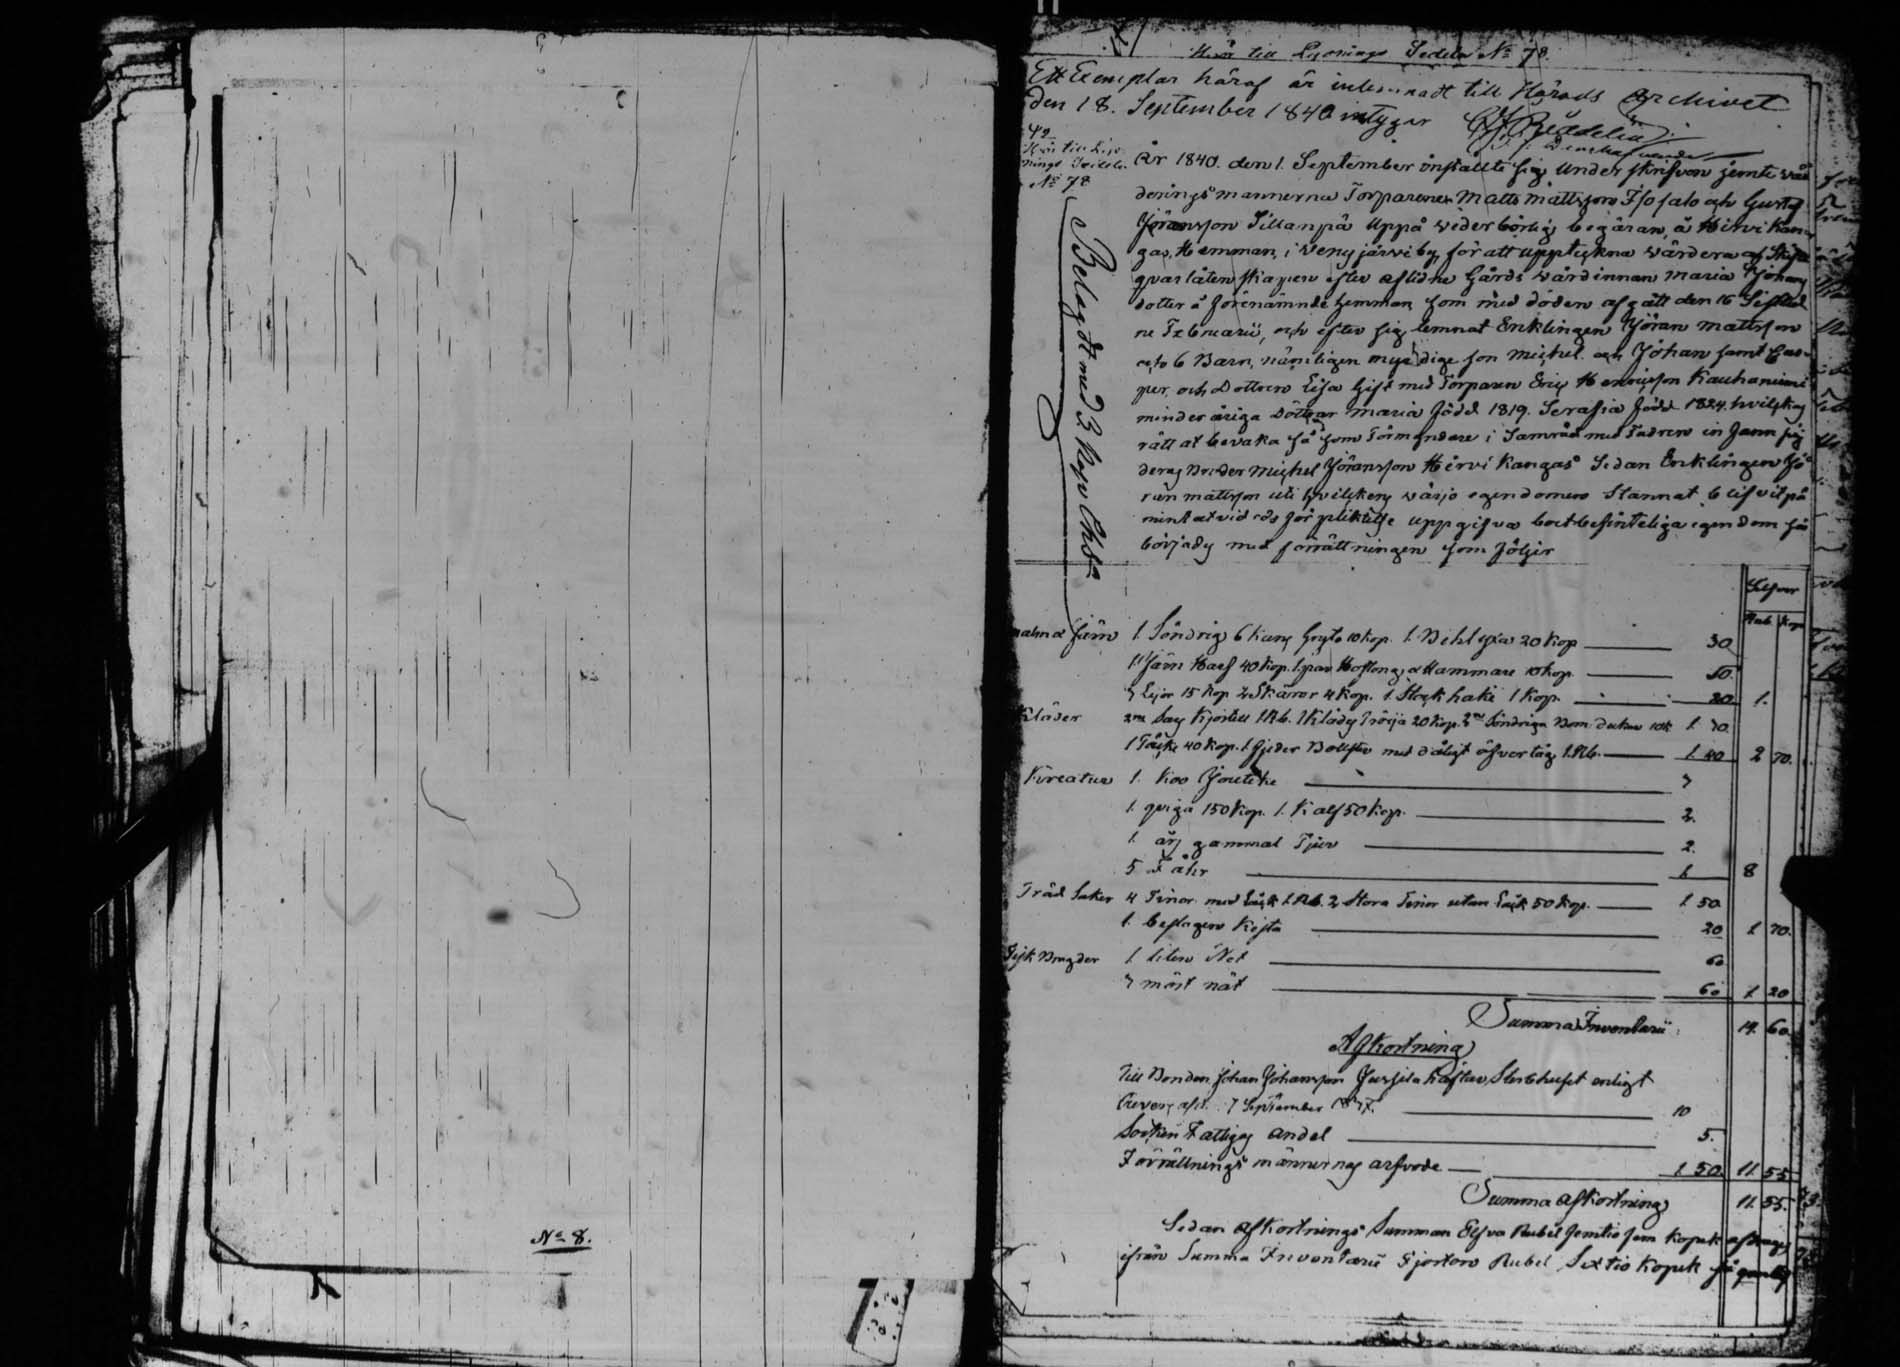 No 8.
Hörer till Lysnings Sedeln No 78.
Ett Exemplar häraf är inlemnadt till Härads Archivet
den 18. September 1840 intygar
42
Hör till Lys-
nings Sedeln
No 78
Belagdt med 3 Kop. Chta
År 1840. den 1. September instälte sig Underskrifven jemte vär
derings mannerna Torparene Matts Mattsson Isosalo och Gustaf
Jöransson Sillanpä Uppå wederbörlig begäran, å Hirvikan-
gas Hemman, i Wenesjärvi by, för att uppteckna wärdera af
qvarlåtenskapen efter aflidne Gårds wärdinnan Maria Johans
dotter å förenämnde hemman, som med döden afgått den 16 Sistled
ne Februarii, och efter sig lemnat Enklingen Jöran Mattsson
och 6 Barn, nämligen myndige son Michel och Johan samt Cas-
per, och Dottren Lisa Gift med Torparen Eric Henricsson Kauhaniemi
minderåriga Döttrar Maria född 1819. Serafia född 1824. hvilkas
rätt at bevaka så som Förmyndare i Samråd med Fadren in fann sig
deras Broder Michel Jöransson Hirvikangas Sedan Enklingen Jö
ran Mattsson uti hvilkens wärjo egendomen Stannat blifvit på
mint at vid eds förpliktelse uppgifva boet befinteliga egendom så
börjades med förrättningen som följer
Silfver
Rub. Kop.
Malm & Järn 1. Söndrig 6 Kans Gryta 10 Kop. 1. Bihlyxa 20 Kop 30
1. Järn Harf 40 Kop. 1. par Hoftong & Hammare 10 Kop. 50.
3 Lijor 15 Kop 2 Skäror 4 Kop. 1. Stock hake 1 Kop. 20 1.
Kläder 2ne Kjortell 1 Rb. 1 Klädes Tröija 20 Kop. 2ne Söndriga Bom. dukar 10 K 1. 30.
1 Täcke 40 Kop. 1 Fjeder Bolster med dåligt öfvertåg 1. Rb. 1. 40 2 70.
Kreatur 1. Koo 3
1. qviga 150 Kop. 1. Kalf 50 Kop. 2.
1. års gammal Tjur 2.
5 Fåhr 1. 8
Träd Saker 4 Tinor med Låck 1. Rb. 2 Stora Tinor utan Låck 50 Kop. 1. 50
1. beslagen Kista 20 1. 70.
Fisk Bragder 1. liten Not 60
3 mört nät 60 1. 20
Summa Inventarii 14. 60.
Afkortning
Till Bonden Johan Johansson Jussila häftar Sterbhuset enligt
Revers af d. 7 September 10
Socken Fattigas andel 5.
Förrättnings männernas arfvode 1. 50. 11 55
Summa Afkortning 11. 55.
Sedan Afkortnings Summan Elfva Rubel femtio fem Kopek afdrages
ifrån Summa Inventarii Fjorton Rubel Sextio Kopek så